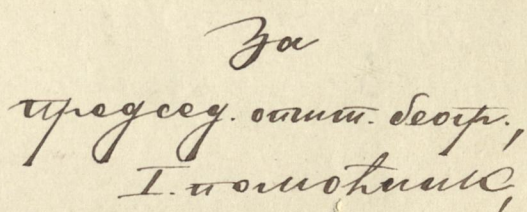 За
председ. општ. беогр.,
I. помоћник,